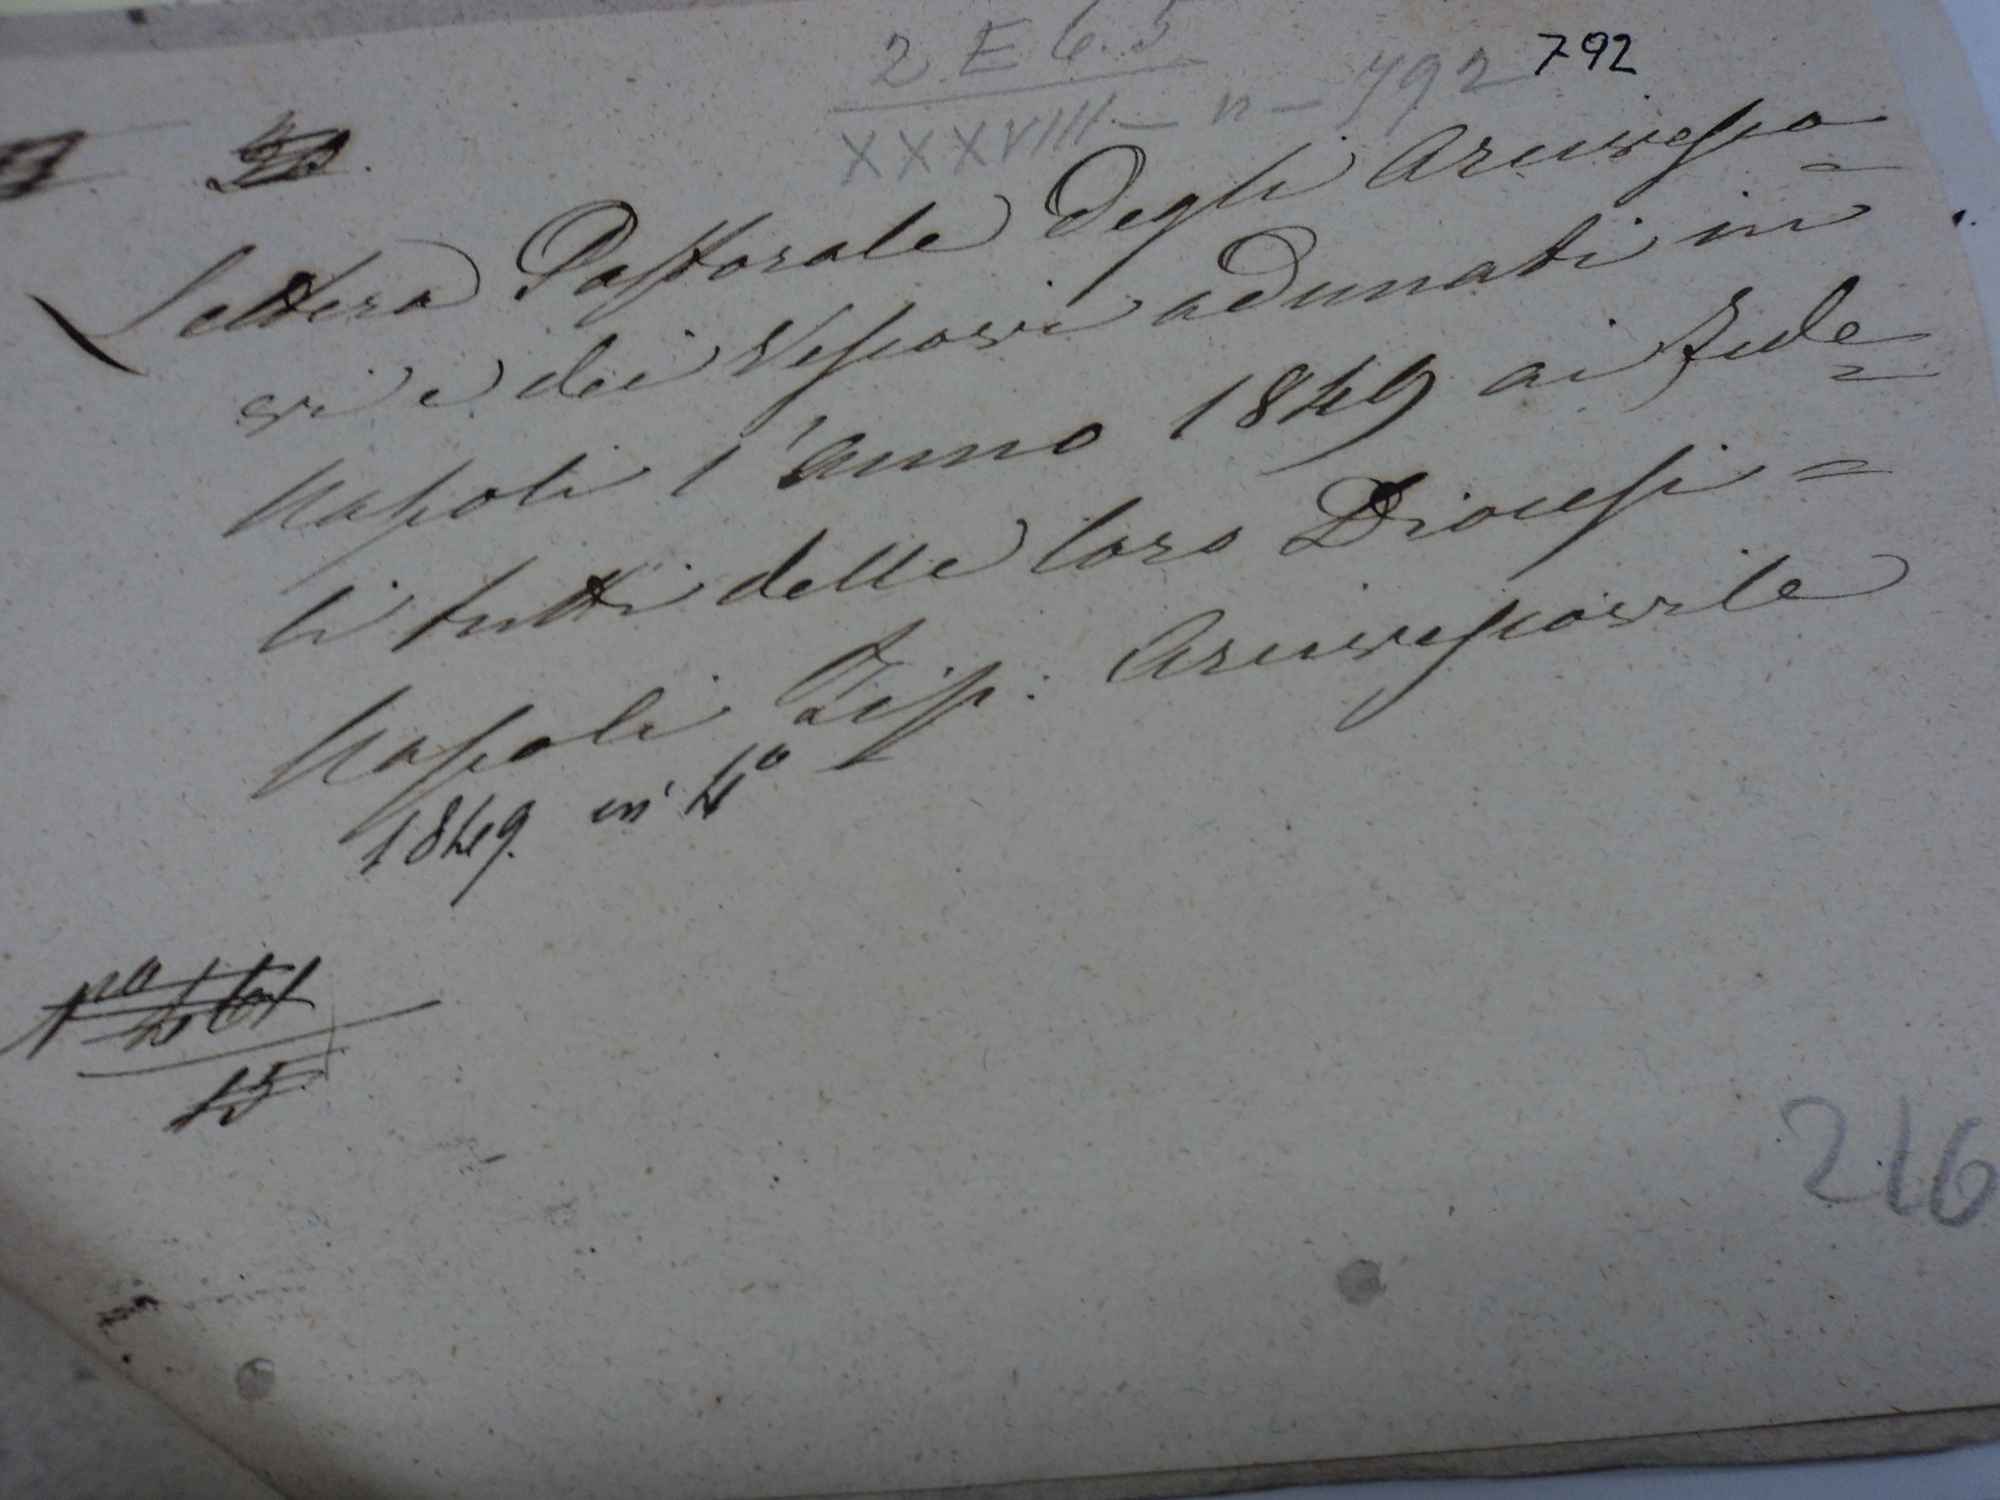 2 E 6.5
792
XXXVIII - n - 792
Lettera Pastorale degli Arcivesco=
vi e dei Vescovi adunati in
Napoli l'anno 1849 ai Fede=
li tutti delle loro Diocesi =
Napoli Tip: Arcivescovile
1849. in 4º
15
216